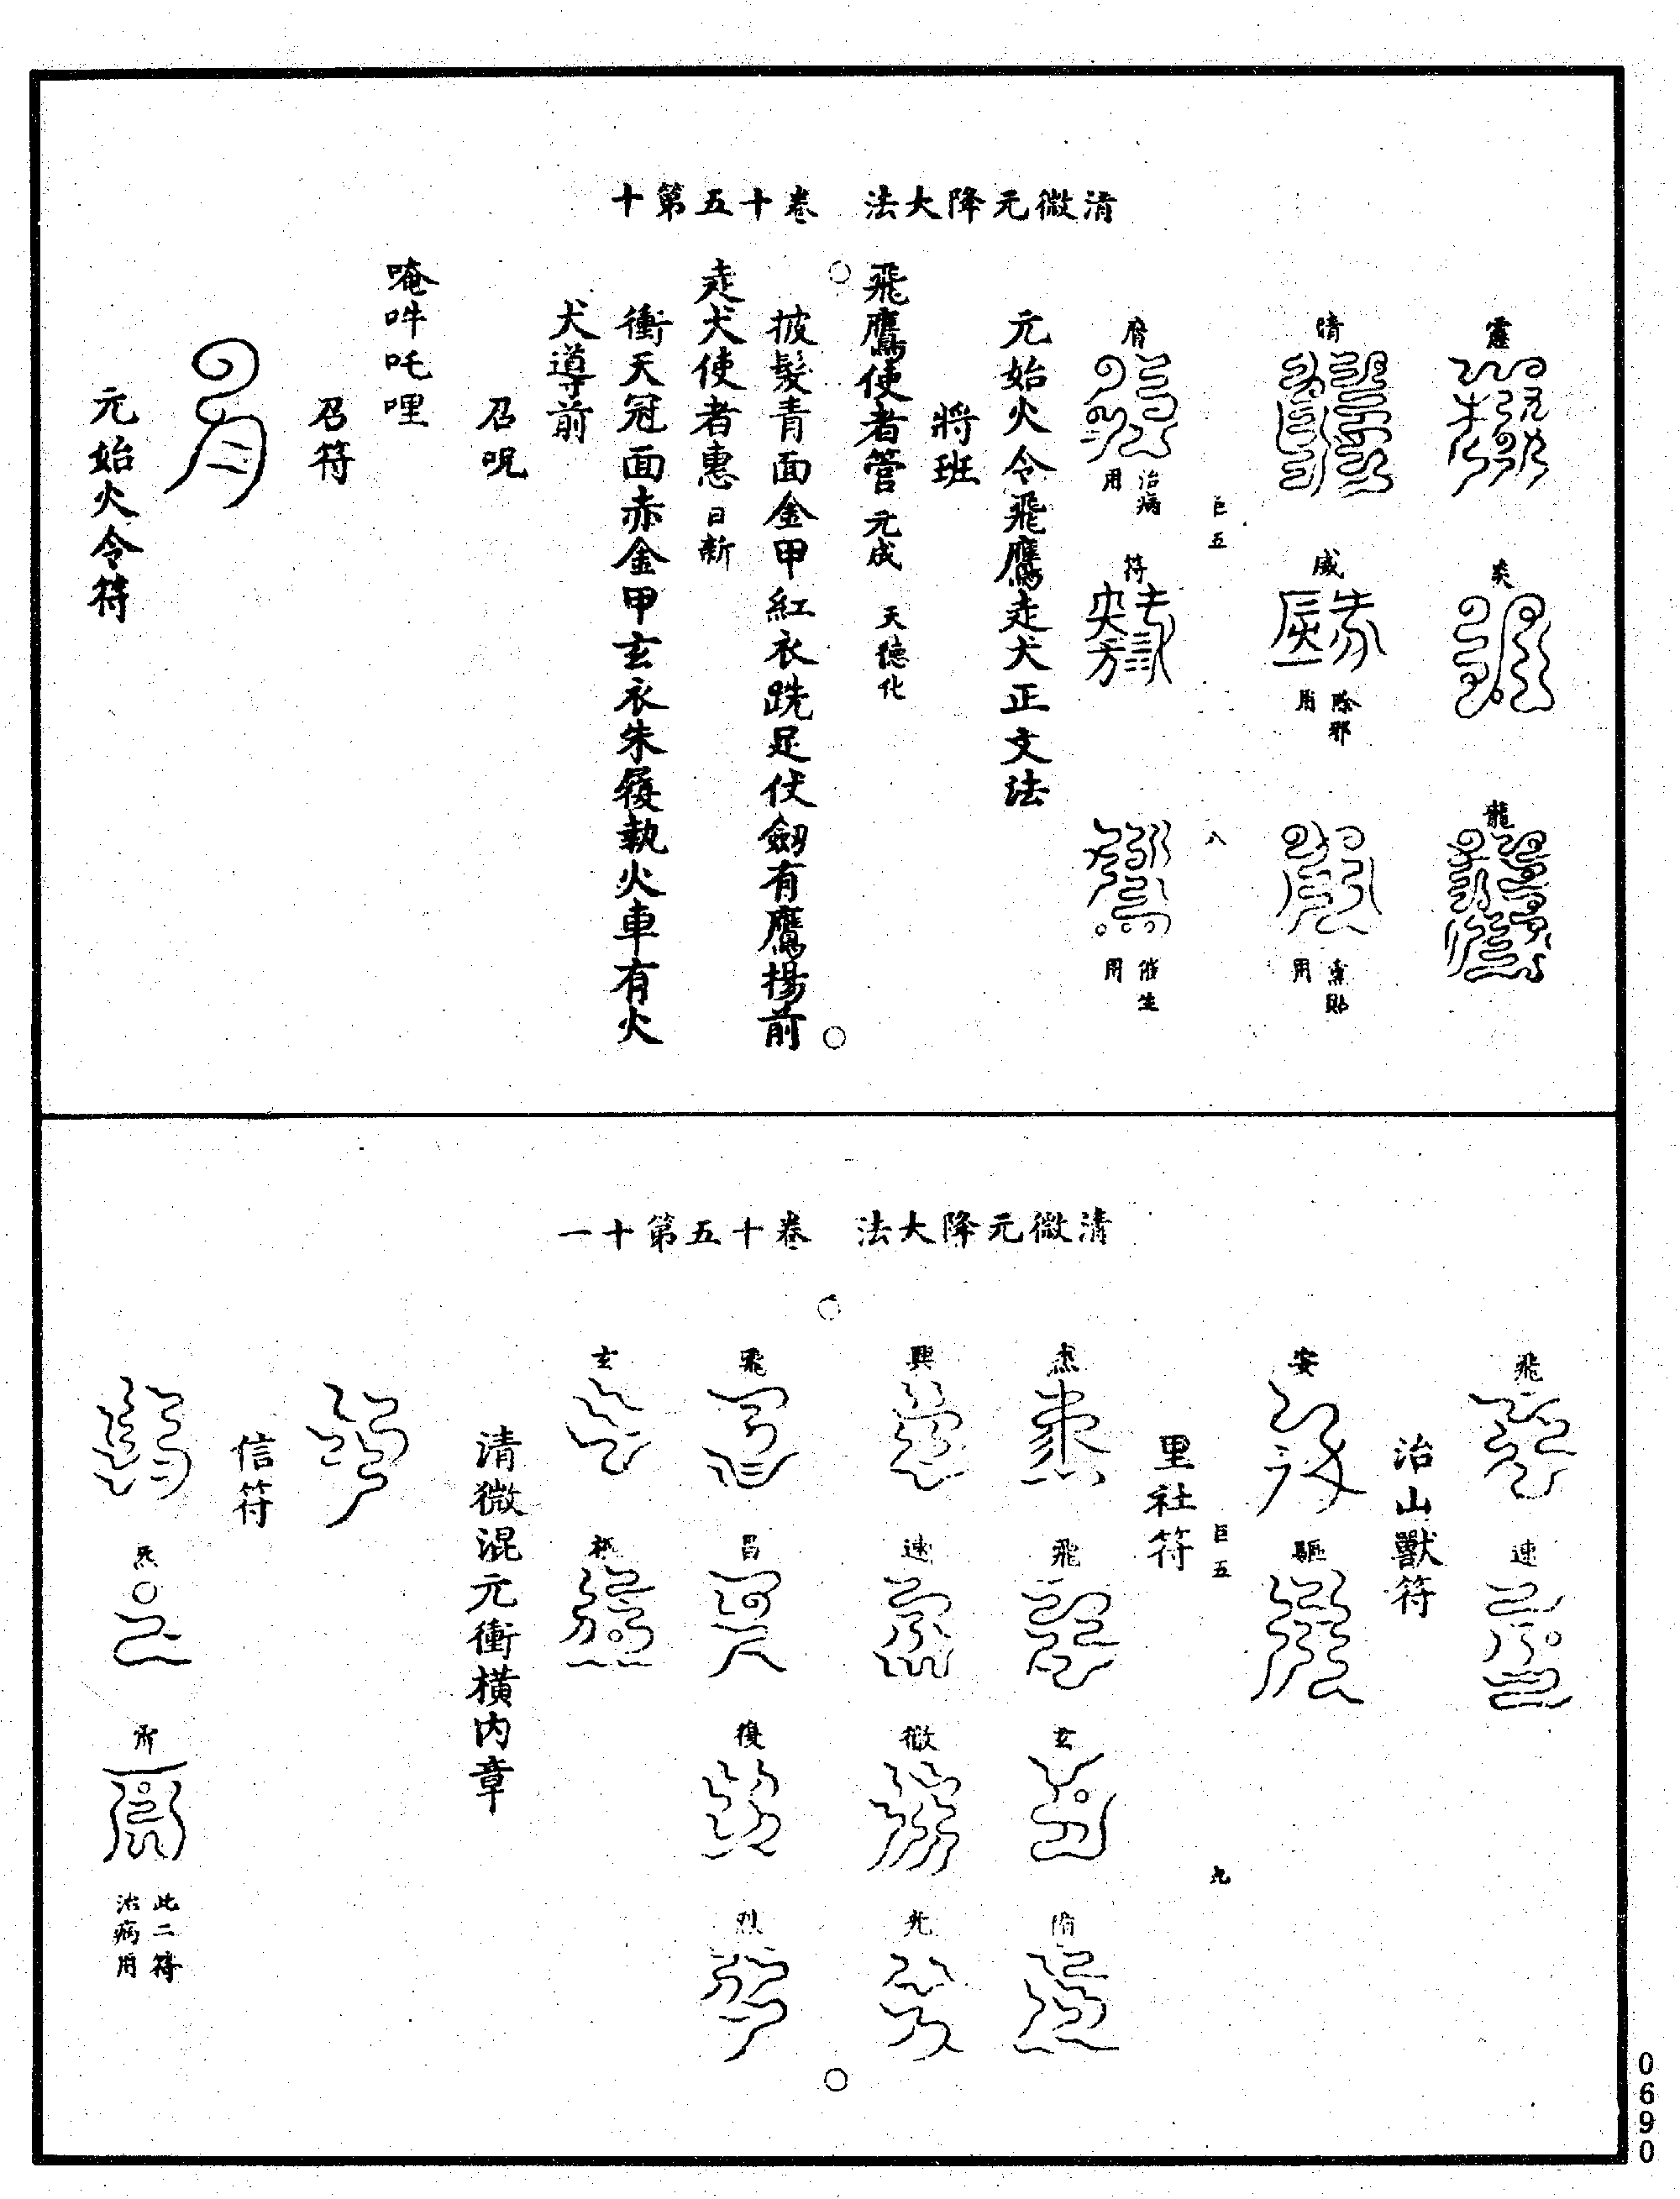 清微元降大法　卷十五第十
靈　炎　龍
清　威
除邪用
巨五　八
府　符
治病用
催生用
元始火令飛鷹走犬正文法
將班
飛鷹使者管元成　天德化
披髮青面金甲紅衣跣足伏劒有鷹揚前
走犬使者惠日新
衝天冠面赤金甲玄衣朱履執火車有火
犬導前
召呪
唵吽吒哩
召符
元始火令符
清微元降大法　卷十五第十一
飛　速
治山獸符
安　驅
巨五　九
里社符
飛　玄
興　速　微　光
飛　昌　復　烈
玄　祇
清微混元衝橫内章
信符
此二符治病用
0690